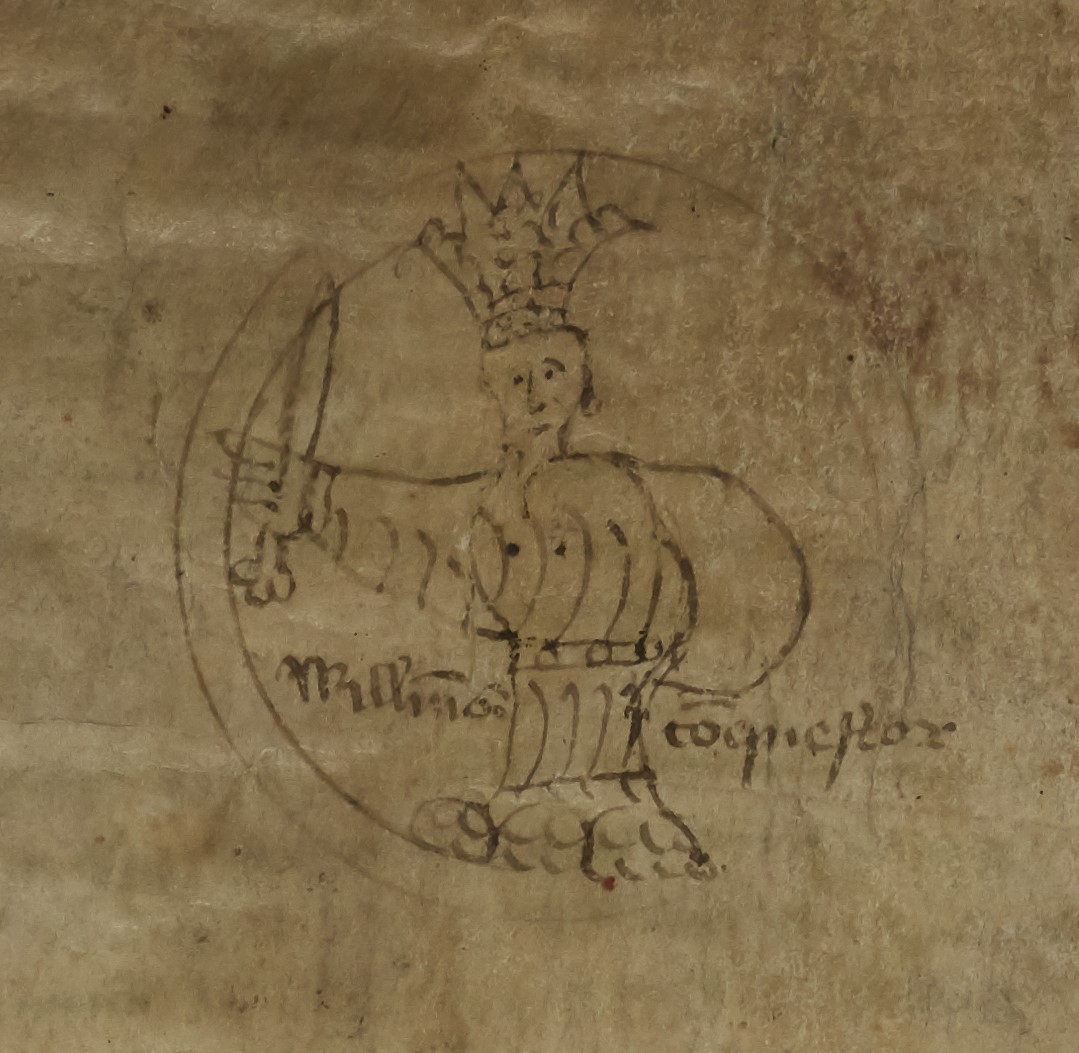 Willm̄s cōquestor